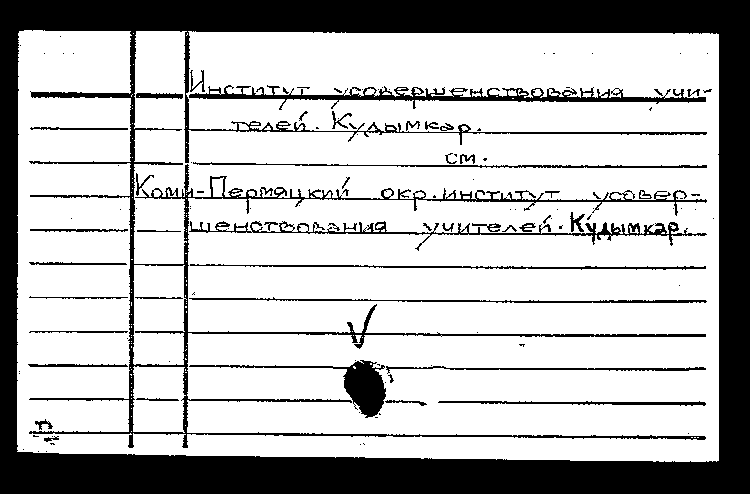 Институт усовершенствования учи-
телей. Кудымкар.
см.
Коми-Пермяцкий окр. институт усовер-
шенствования учителей. Кудымкар.